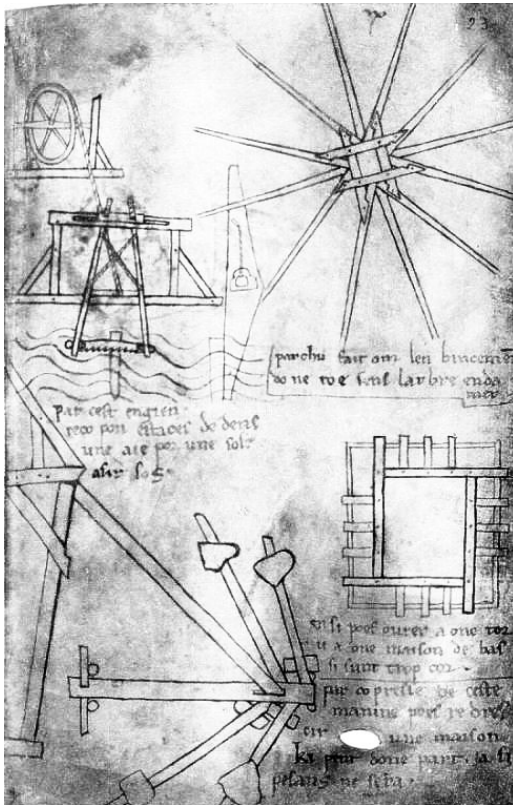 23
par chu fait om len bracement
do ne roe sens larbre enda
mer
par cest engien
reco pon estaces de dens
une aie por une sole
asir sos
en si poes ovrer a one tor
u a one maison de bas
si sunt trop cor
par de ceste
manire poes re dre
cir une maison
ki pent done part ja si
pesans ne sera